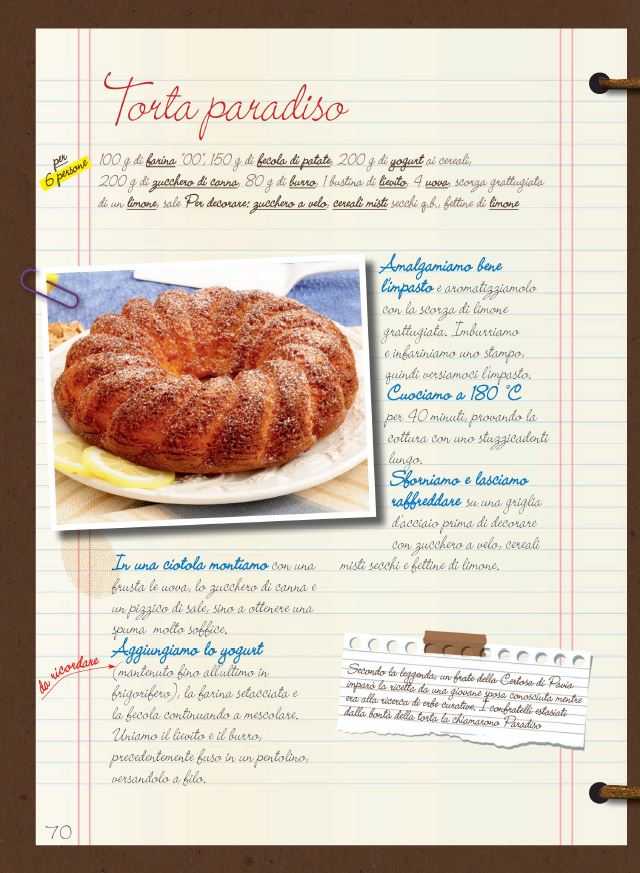 Torta paradiso
per
6 persone
100 g di farina "00", 150 g di fecola di patate, 200 g di yogurt ai cereali,
200 g di zucchero di canna, 80 g di burro, 1 bustina di lievito, 4 uova, scorza grattugiata
di un limone, sale Per decorare: zucchero a velo, cereali misti secchi q.b., fettine di limone
In una ciotola montiamo con una
frusta le uova, lo zucchero di canna e
un pizzico di sale, sino a ottenere una
spuma molto soffice.
Aggiungiamo lo yogurt
da ricordare
(mantenuto fino all'ultimo in
frigorifero), la farina setacciata e
la fecola continuando a mescolare.
Uniamo il lievito e il burro,
precedentemente fuso in un pentolino,
versandolo a filo.
Amalgamiamo bene
l'impasto e aromatizziamolo
con la scorza di limone
grattugiata. Imburriamo
e infariniamo uno stampo,
quindi versiamoci l'impasto.
Cuociamo a 180 °C
per 40 minuti, provando la
cottura con uno stuzzicadenti
lungo.
Sforniamo e lasciamo
raffreddare su una griglia
d'acciaio prima di decorare
con zucchero a velo, cereali
misti secchi e fettine di limone.
Secondo la leggenda, un frate della Certosa di Pavia
imparò la ricetta da una giovane sposa conosciuta mentre
era alla ricerca di erbe curative. I confratelli estasiati
dalla bontà della torta la chiamarono Paradiso
70